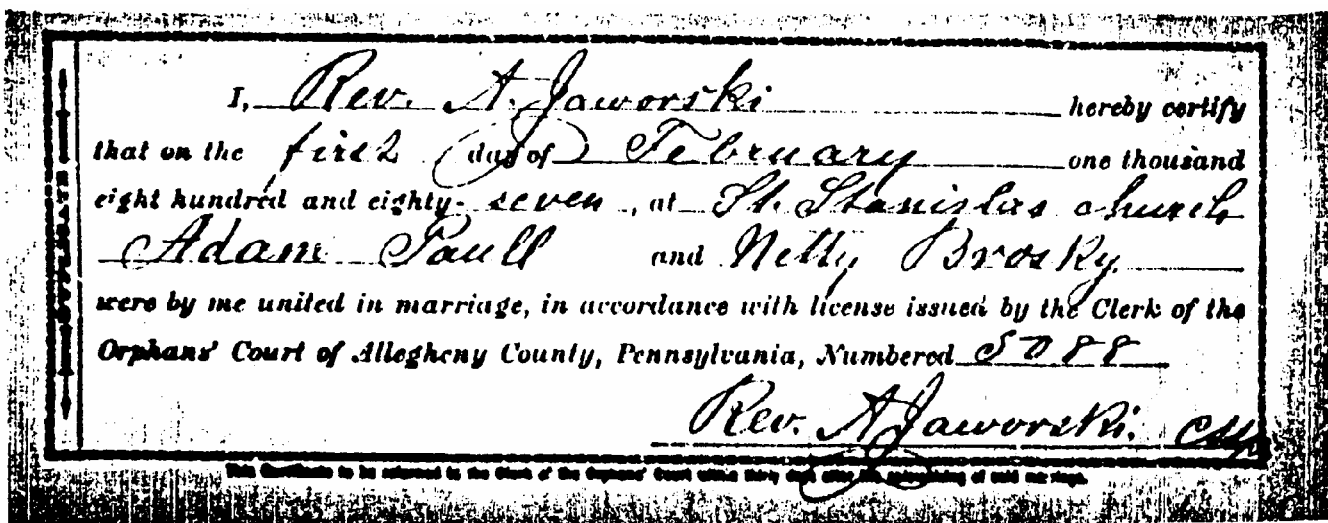 DUPLICATE
I, Rev. A. Jaworski hereby certify
that on the first day of February one thousand
eight hundred and eighty-seven, at St. Stanislas church
Adam Paull and Netty Brosky
were by me united in marriage, in accordance with license issued by the Clerk of the
Orphans' Court of Allegheny County, Pennsylvania, Numbered 5088
Rev. A Jaworski.
This Certificate to be returned to the Clerk of the Orphans' Court within thirty days after the solemnizing of said marriage.